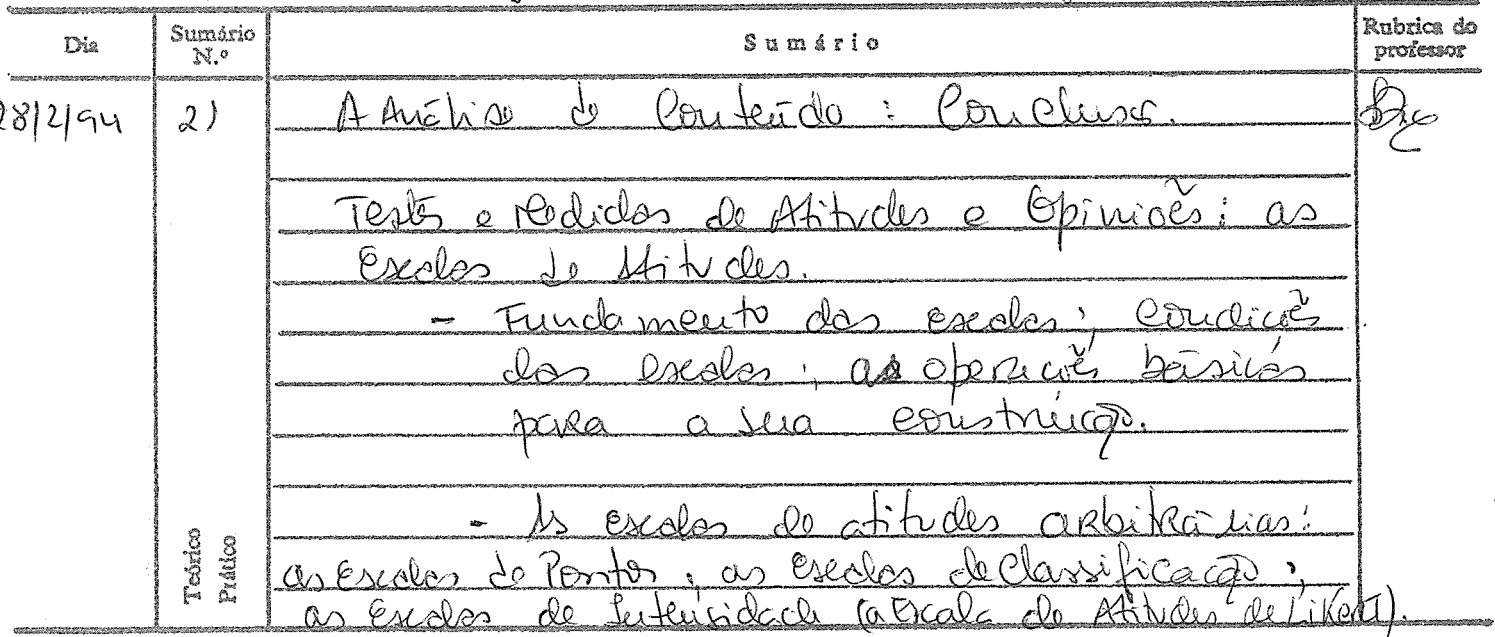 Dia Sumário N.º Sumário Rubrica do professor
28/2/94 2) A Análise de Conteúdo : Conclusão.
Testes e Medidas de Atitudes e Opiniões: as
Escalas de Atitudes.
- Fundamento das escalas; condições
das escalas; as operações básicas
para a sua construção.
- As escalas de atitudes arbitrárias:
as Escalas de Pontos; as escalas de Classificação;
as Escalas de Intensidade (a Escala de Atitudes de Likert).
Teórico
Prático